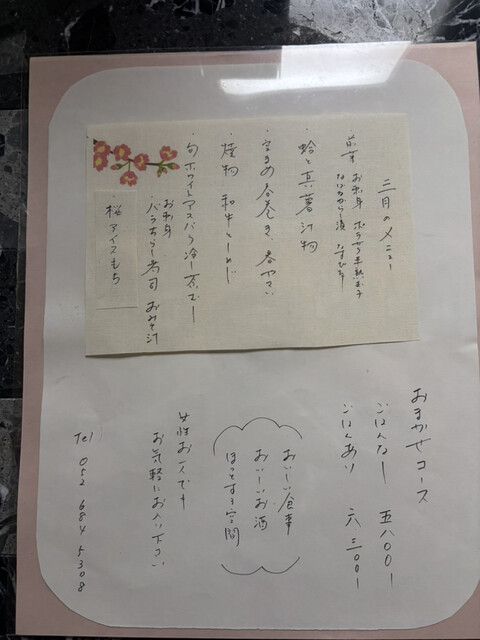 三月のメニュー
前菜 お刺身 ホタテ 半熟玉子
なばなからし漬
・蛤と真薯汁物
春巻き、春やさい
・焼物 和牛としめじ
・旬ホワイトアスパラ冷し茶むし
お刺身
バラちらし寿司 おみそ汁
・桜アイスもち
おまかせコース
ごはんなし 五八〇〇ー
ごはんあり 六三〇〇ー
おいしい食事
おいしいお酒
ほっとする空間
女性お一人でも
お気軽にお入り下さい
Tel 052 684 5308